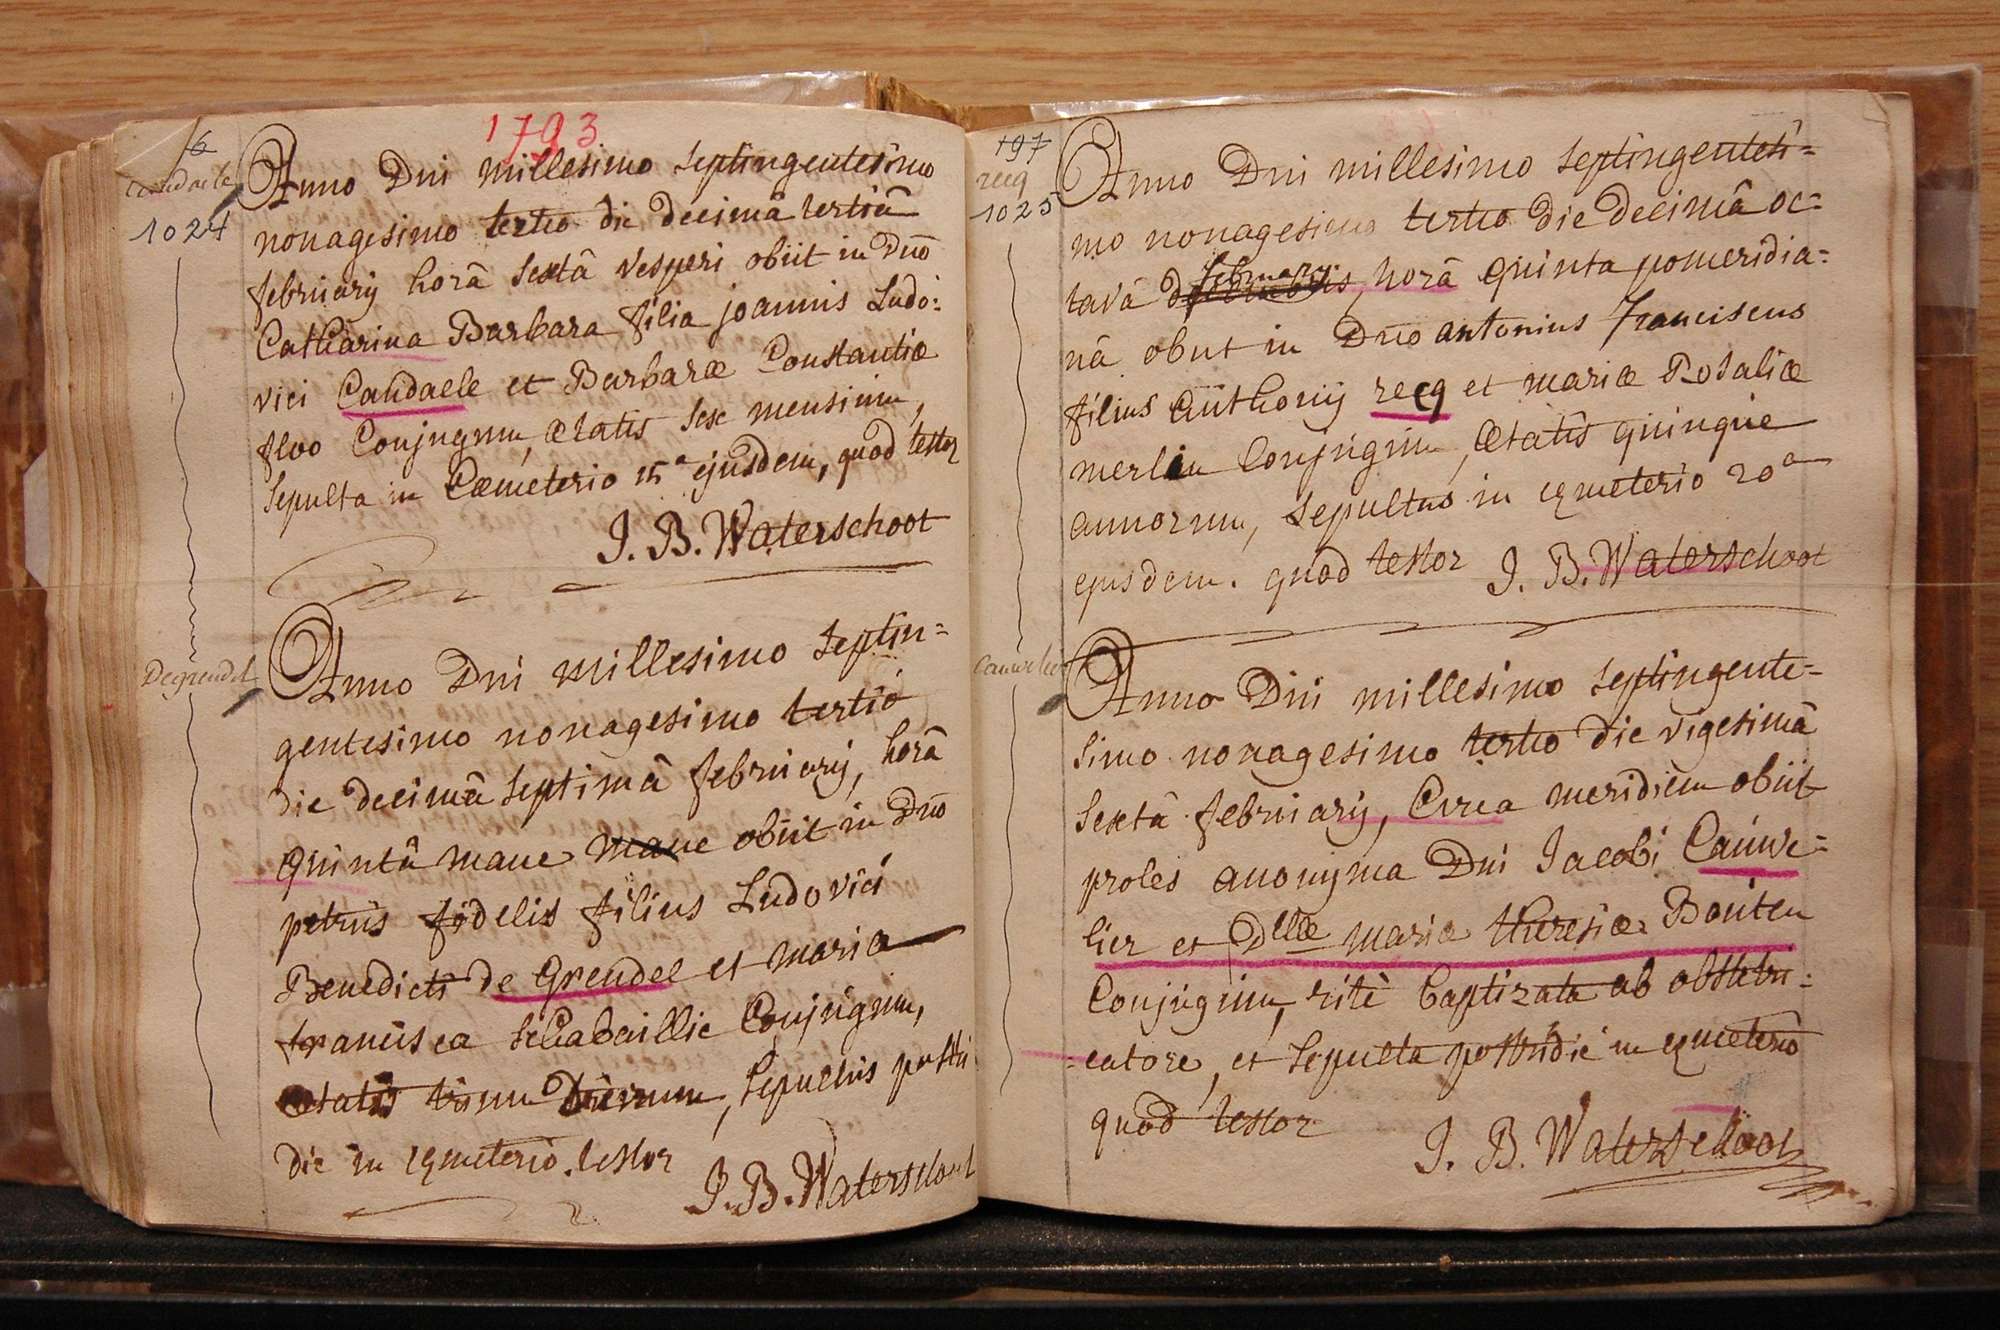 1793
6
Caudaele
1024
Anno Dni millesimo septingentesimo
nonagesimo tertio die decimâ tertiâ
februarij horâ sextâ vesperi obiit in Dno
Catharina Barbara filia joannis Ludo:
vici Caudaele et Barbaræ Constantiæ
floo Conjugum, ætatis sex mensium,
sepulta in Cœmeterio 15ª ejusdem, quod testor
J. B. Waterschoot
Degrendel
Anno Dni millesimo septin=
gentesimo nonagesimo tertio
die decimâ septimâ februarij, horâ
quintâ mane mane obiit in Dno
petrus fidelis filius Ludovici
Benedicti de Grendel et maria
francisca schabaillie Conjugum,
ætatis trium dierum, sepultus postri
die in cymeterio. testor
J. B. Waterschoot
197
recq
1025
Anno Dni millesimo septingentesi=
mo nonagesimo tertio die decimâ oc=
tavâ februarij, horâ quinta pomeridia=
nâ obiit in Dno antonius franciscus
filius Anthonij recq et mariæ Rosaliæ
merlin Conjugum, ætatis quinque
annorum, sepultus in cymeterio 20ª
ejusdem. quod testor J. B. Waterschoot
Cauwelier
Anno Dni millesimo septingente=
simo nonagesimo tertio die vigesimâ
sextâ februarij, Circa meridiem obiit
proles anonyma Dni Jacobi Cauwe=
lier et Dellæ mariæ theresiæ Bouten
Conjugum, ritè baptizata ab obstetri=
=catore, et sepulta postridie in cymeterio
quod testor
J. B. Waterschoot